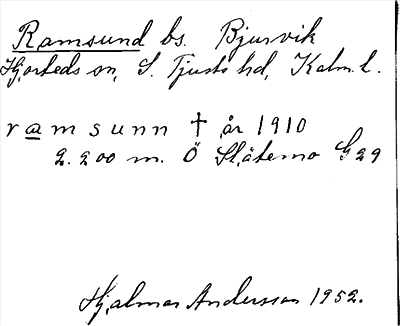 Ramsund bs. Bjurvik
Hjorteds sn, S. Tjusts hd, Kalm. l.
r a m s u n n † år 1910
2.200 m. Ö Slätemo G29
Hjalmar Andersson 1952.